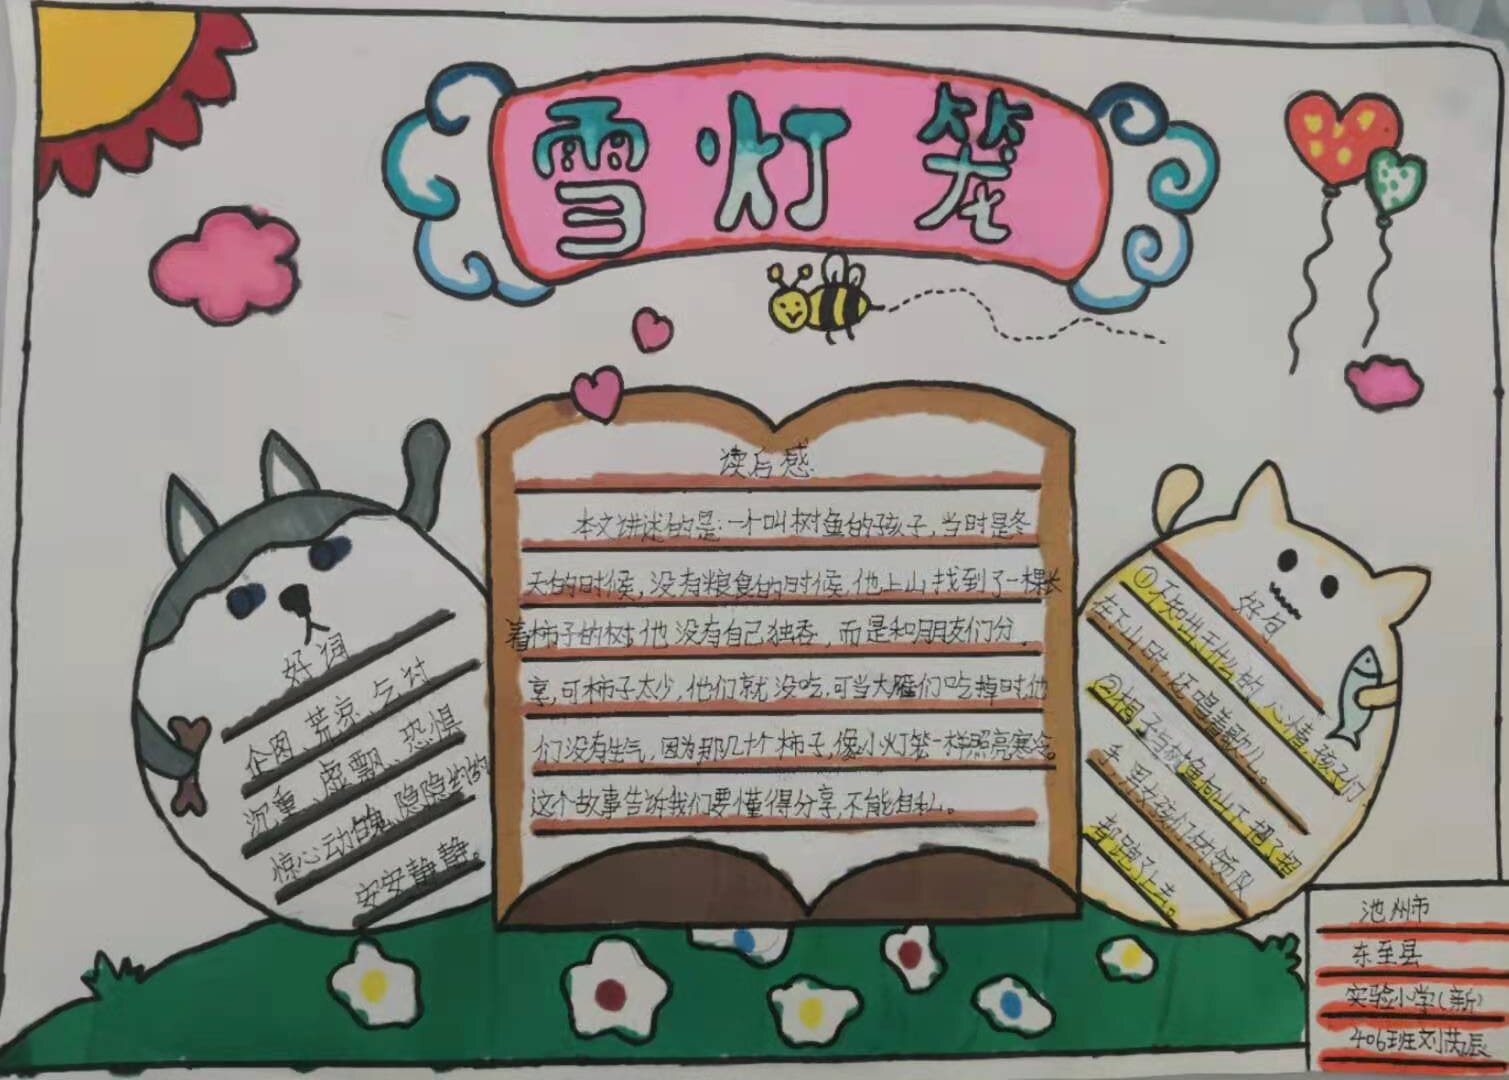 雪灯笼
好词
企图、荒凉、乞讨
沉重、虚飘、恐惧
惊心动魄、隐隐约约
安安静静。
读后感
本文讲述的是:一个叫树鱼的孩子,当时是冬
天的时候,没有粮食的时候,他上山找到了一棵长
着柿子的树,他没有自己独吞,而是和朋友们分
享,可柿子太少,他们就没吃,可当大雁们吃掉时,他
们没有生气,因为那几十个柿子,像小灯笼一样照亮寒冬。
这个故事告诉我们要懂得分享,不能自私。
好句
①不知出于什么的心情,孩子们
在下山时,还唱着歌儿。
②梅子与树鱼向山下招了招
手,男女孩们的领队
都跑了上去。
池州市
东至县
实验小学(新)
406班刘芮辰